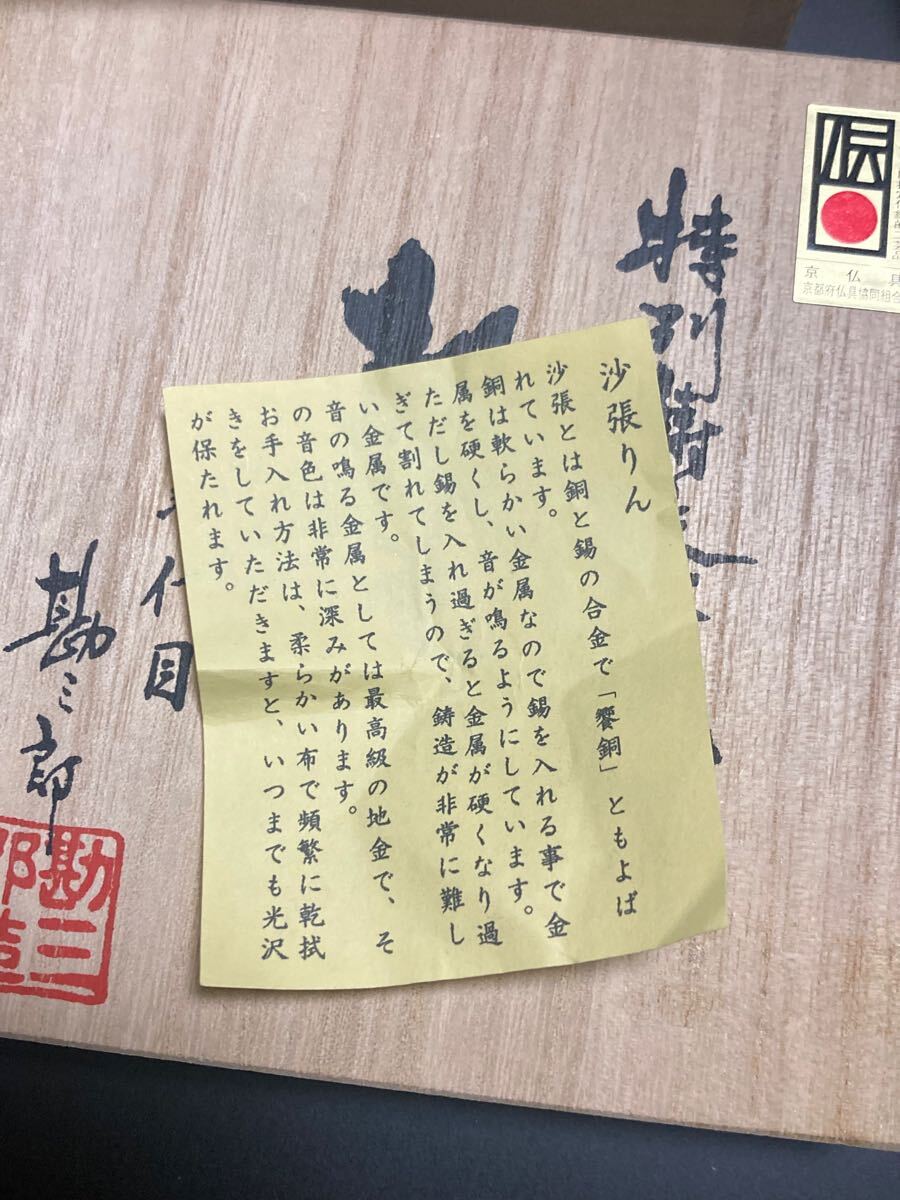 沙張りん
沙張とは銅と錫の合金で「響銅」ともよば
れています。
銅は軟らかい金属なので錫を入れる事で金
属を硬くし、音が鳴るようにしています。
ただし錫を入れ過ぎると金属が硬くなり過
ぎて割れてしまうので、鋳造が非常に難し
い金属です。
音の鳴る金属としては最高級の地金で、そ
の音色は非常に深みがあります。
お手入れ方法は、柔らかい布で頻繁に乾拭
きをしていただきますと、いつまでも光沢
が保たれます。
特別
代目
勘三郎
勘三
伝
京仏具
京都府仏具協同組合